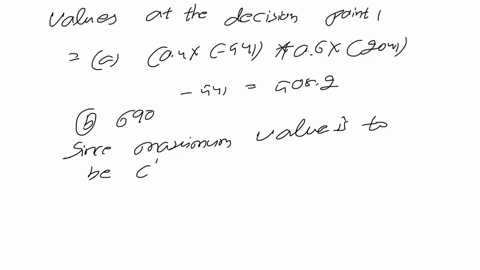 values at the decision point 1
= (a) (0.4 x (-441) + 0.6 x (2041)
- 441 = 408.2
(b) 690
Since maximum value is to
be c'